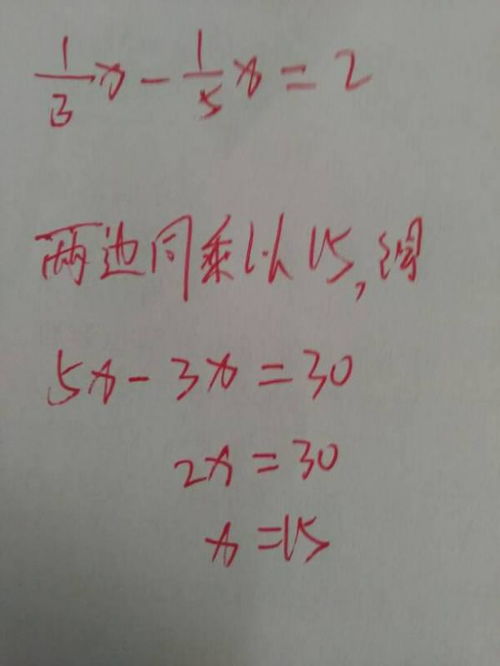 1/3 x - 1/5 x = 2
两边同乘以15,得
5x - 3x = 30
2x = 30
x = 15